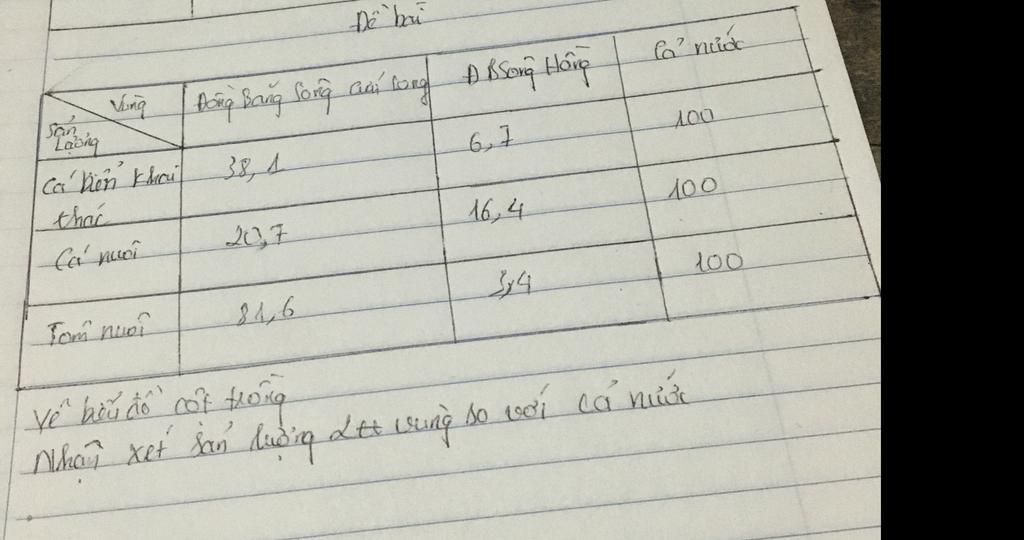 Đề bài
Vùng
Sản
Lượng
Đồng Bằng Sông Cửu Long
ĐB Sông Hồng
Cả nước
Cá biển khai
thác
38,1
6,7
100
Cá nuôi
20,7
16,4
100
Tôm nuôi
81,6
3,4
100
Vẽ biểu đồ cột trồng
Nhận xét sản lượng vùng so với cả nước